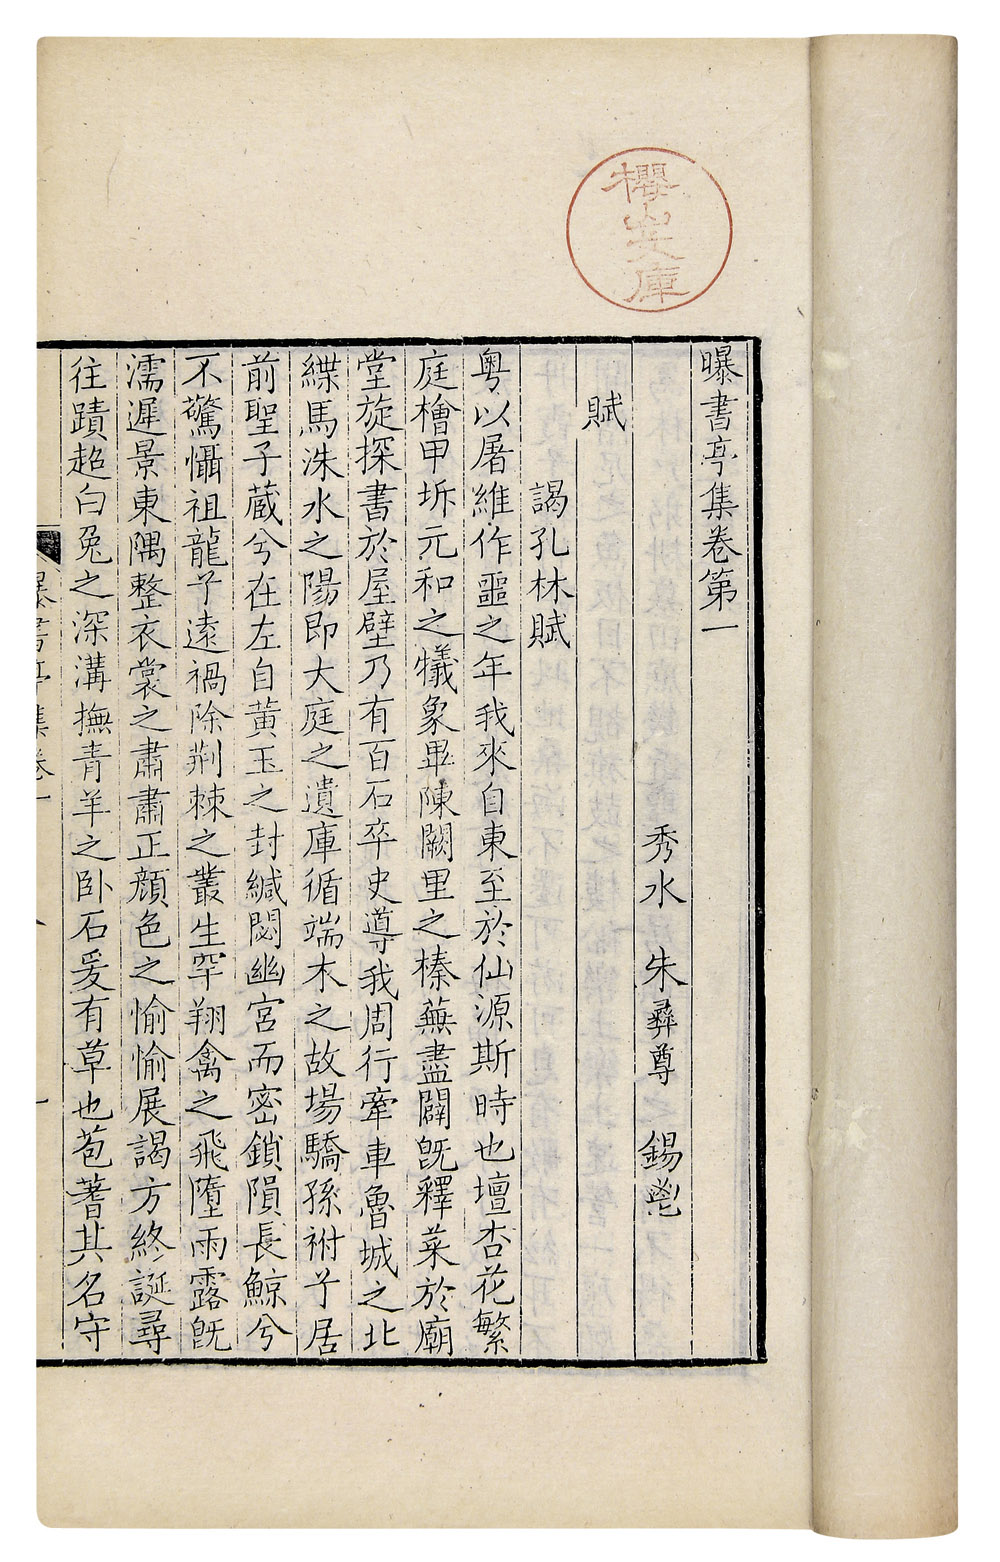 櫻山文庫
曝書亭集卷第一
秀水 朱彝尊 錫鬯
賦
謁孔林賦
粤以屠維作噩之年我來自東至於仙源斯時也壇杏花繁
庭檜甲坼元和之犧象畢陳闕里之榛蕪盡闢旣釋菜於廟
堂旋探書於屋壁乃有百石卒史導我周行牽車魯城之北
緤馬洙水之陽即大庭之遺庫循端木之故場驕孫祔子居
前聖子蔵兮在左自黃玉之封緘閟幽宮而密鎖隕長鯨兮
不驚懾祖龍予遠禍除荆棘之叢生罕翔禽之飛墮雨露旣
濡遲景東隅整衣裳之肅肅正顔色之愉愉展謁方終誕尋
往蹟超白兔之深溝撫青羊之卧石爰有草也苞蓍其名守